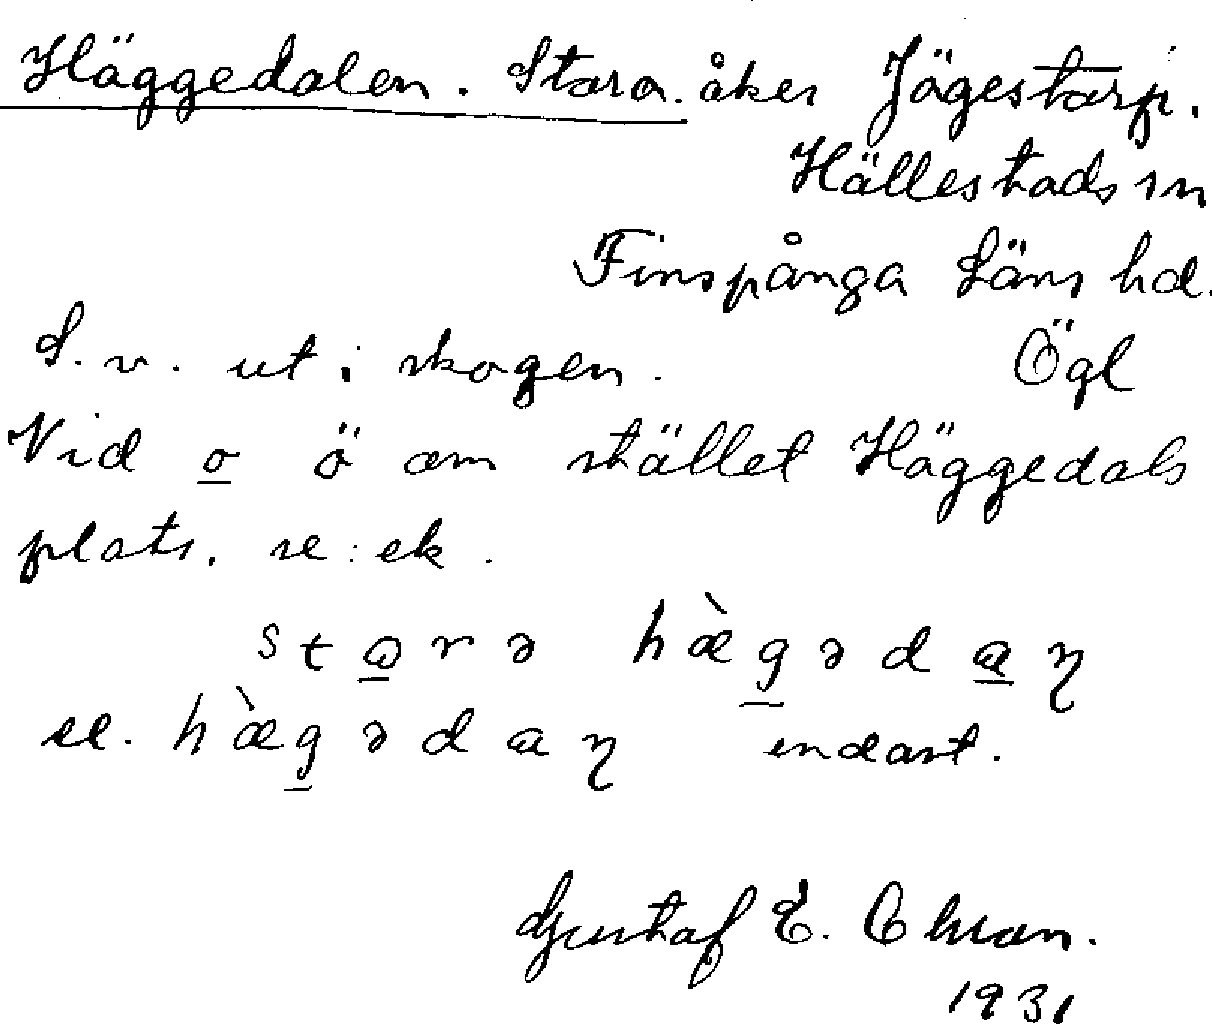 Häggedalen. Stora. åker Jägestorp.
Hällestads sn
Finspånga Läns hd.
S. v. ut i skogen. Ögl
Vid o ö om stället Häggedals
plats. se: ek.
stɷrə hæ̀gədaɳ
el. hæ̀gədaɳ endast.
Gustaf E.
1931